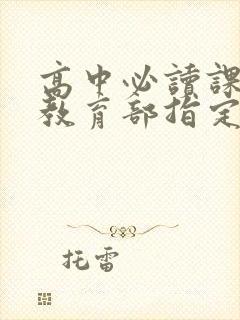 高中必讀課
教育部指定
托雷